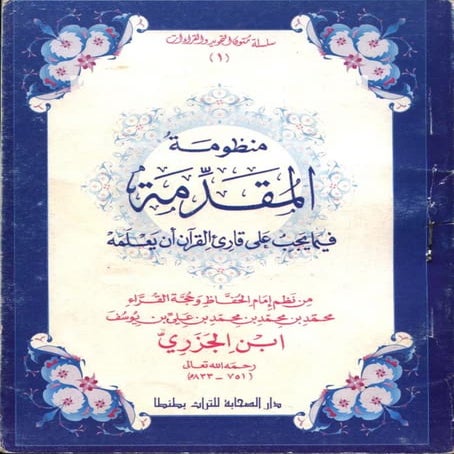 سلسلة متون التجويد والقراءات
(١)
منظومة
المقدِّمة
فيما يجبُ على قارئ القرآن أن يَعْلَمَه
مِن نظم إمام الحفاظ وحجة القراء
محمد بن محمد بن محمد بن علي بن يوسف
ابن الجزري
رحمه الله تعالى
(٧٥١ - ٨٣٣هـ)
دار الصحابة للتراث بطنطا